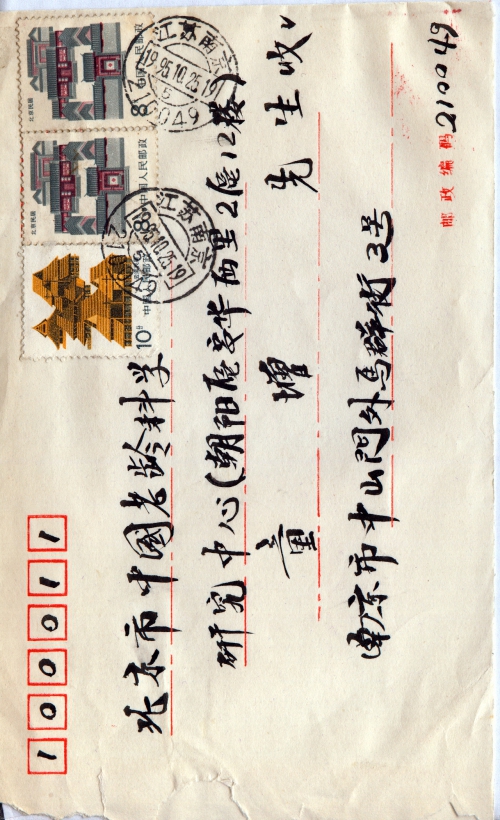 100011
北京市中國老龄科学
研究中心(朝阳區安华西里2區12楼)
童增 先生收
南京市中山門外馬群街3号
邮政编码 210049
北京民居
8分 中国人民邮政
北京民居
8分 中国人民邮政
10分 中国人民邮政
江苏南京
1995.10.25.19
江苏南京